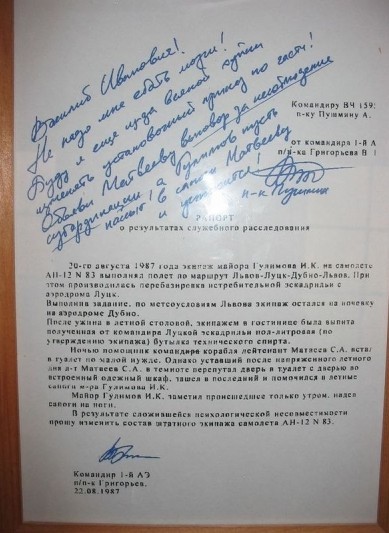 Василий Иванович!
Не надо мне ебать мозги!
Буду я еще из-за всякой хуйни
изменять установочный приказ по части!
Объяви Матвееву выговор за несоблюдение
субординации а Гулимов пусть
нассыт в сапоги Матвееву
и успокоится!
п-к Пушмин
Командиру ВЧ 159
п-ку Пушмину А.
от командира 1-й А
п/п-ка Григорьева В
РАПОРТ
о результатах служебного расследования
20-го августа 1987 года экипаж майора Гулимова И.К. на самолете
АН-12 N 83 выполнял полет по маршруту Львов-Луцк-Дубно-Львов. При
этом производилась перебазировка истребительной эскадрильи с
аэродрома Луцк.
Выполнив задание, по метеоусловиям Львова экипаж остался на ночевку
на аэродроме Дубно.
После ужина в летной столовой, экипажем в гостинице была выпита
полученная от командира Луцкой эскадрильи пол-литровая (по
утверждению экипажа) бутылка технического спирта.
Ночью помощник командира корабля лейтенант Матвеев С.А. встал
в туалет по малой нужде. Однако уставший после напряженного летного
дня л-т Матвеев С.А. в темноте перепутал дверь в туалет с дверью во
встроенный одежный шкаф, зашел в последний и помочился в летные
сапоги м-ра Гулимова И.К.
Майор Гулимов И.К. заметил происшедшее только утром, надев
сапоги на ноги.
В результате сложившейся психологической несовместимости
прошу изменить состав штатного экипажа самолета АН-12 N 83.
Командир 1-й АЭ
п/п-к Григорьев.
22.08.1987